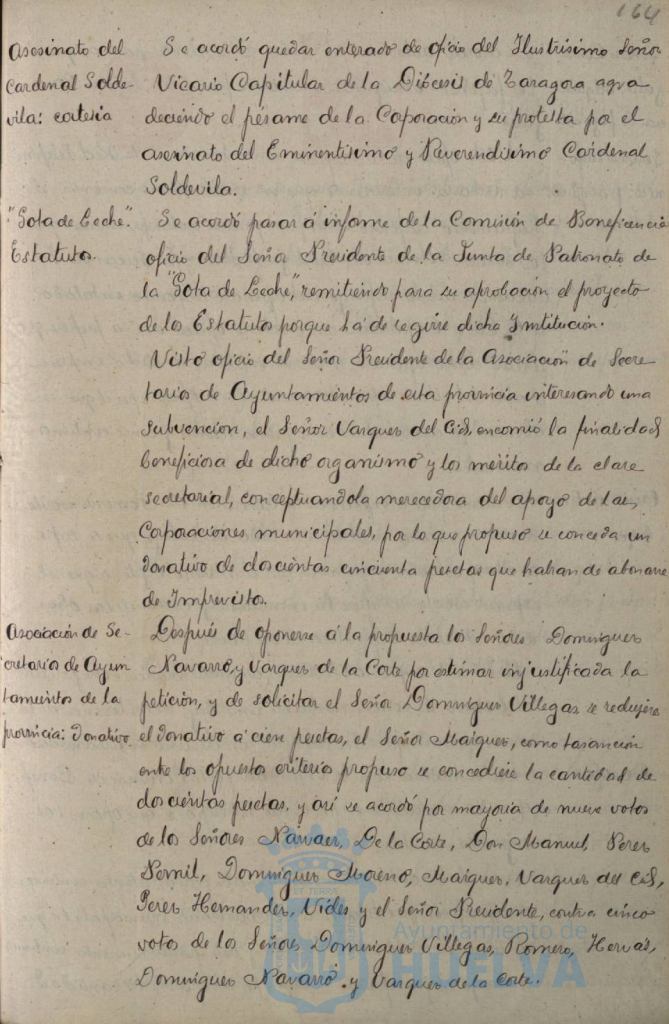 164
Asesinato del
Cardenal Solde-
vila: cortesia
Se acordó quedar enterado de oficio del Ilustrisimo Señor
Vicario Capitular de la Diócesis de Zaragoza agra
deciendo el pésame de la Coporación y su protesta por el
asesinato del Eminentisimo y Reverendisimo Cardenal
Soldevila.
"Gota de Leche".
Estatutos.
Se acordó pasar á informe de la Comisión de Beneficencia
oficio del Señor Presidente de la Junta de Patronato de
la "Gota de Leche", remitiendo para su aprobación el proyecto
de los Estatutos porque há de regirse dicha Institución.
Visto oficio del Señor Presidente de la Asociación de Secre
tarios de Ayuntamientos de esta provincia interesando una
subvención, el Señor Vazquez del Cid, encomió la finalidad
beneficiosa de dicho organismo y los meritos de la clase
secretarial, conceptuandola merecedora del apoyo de las
Corporaciones municipales, por lo que propuso se conceda un
donativo de doscientas cincuenta pesetas que habian de abonarse
de Imprevistos.
Asociación de Se-
cretarios de Ayun
tamientos de la
provincia: Donativo
Después de oponerse á la propuesta los Señores Dominguez
Navarro, y Vazquez de la Corte por estimar injustificada la
petición, y de solicitar el Señor Dominguez Villegas se redujera
el donativo á cien pesetas, el Señor Maiquez, como tasanción
entre los opuestos criterios propuso se concediese la cantidad de
doscientas pesetas, y así se acordó por mayoria de nueve votos
de los Señores Narvaez, De la Corte, Don Manuel Perez
Pernil, Dominguez Moreno, Maiquez, Vazquez del Cid,
Perez Hernandez, Vides y el Señor Presidente, contra cinco
votos de los Señores Dominguez Villegas, Romero, Hervás,
Dominguez Navarro y Vazquez de la Corte.
Ayuntamiento de
HUELVA